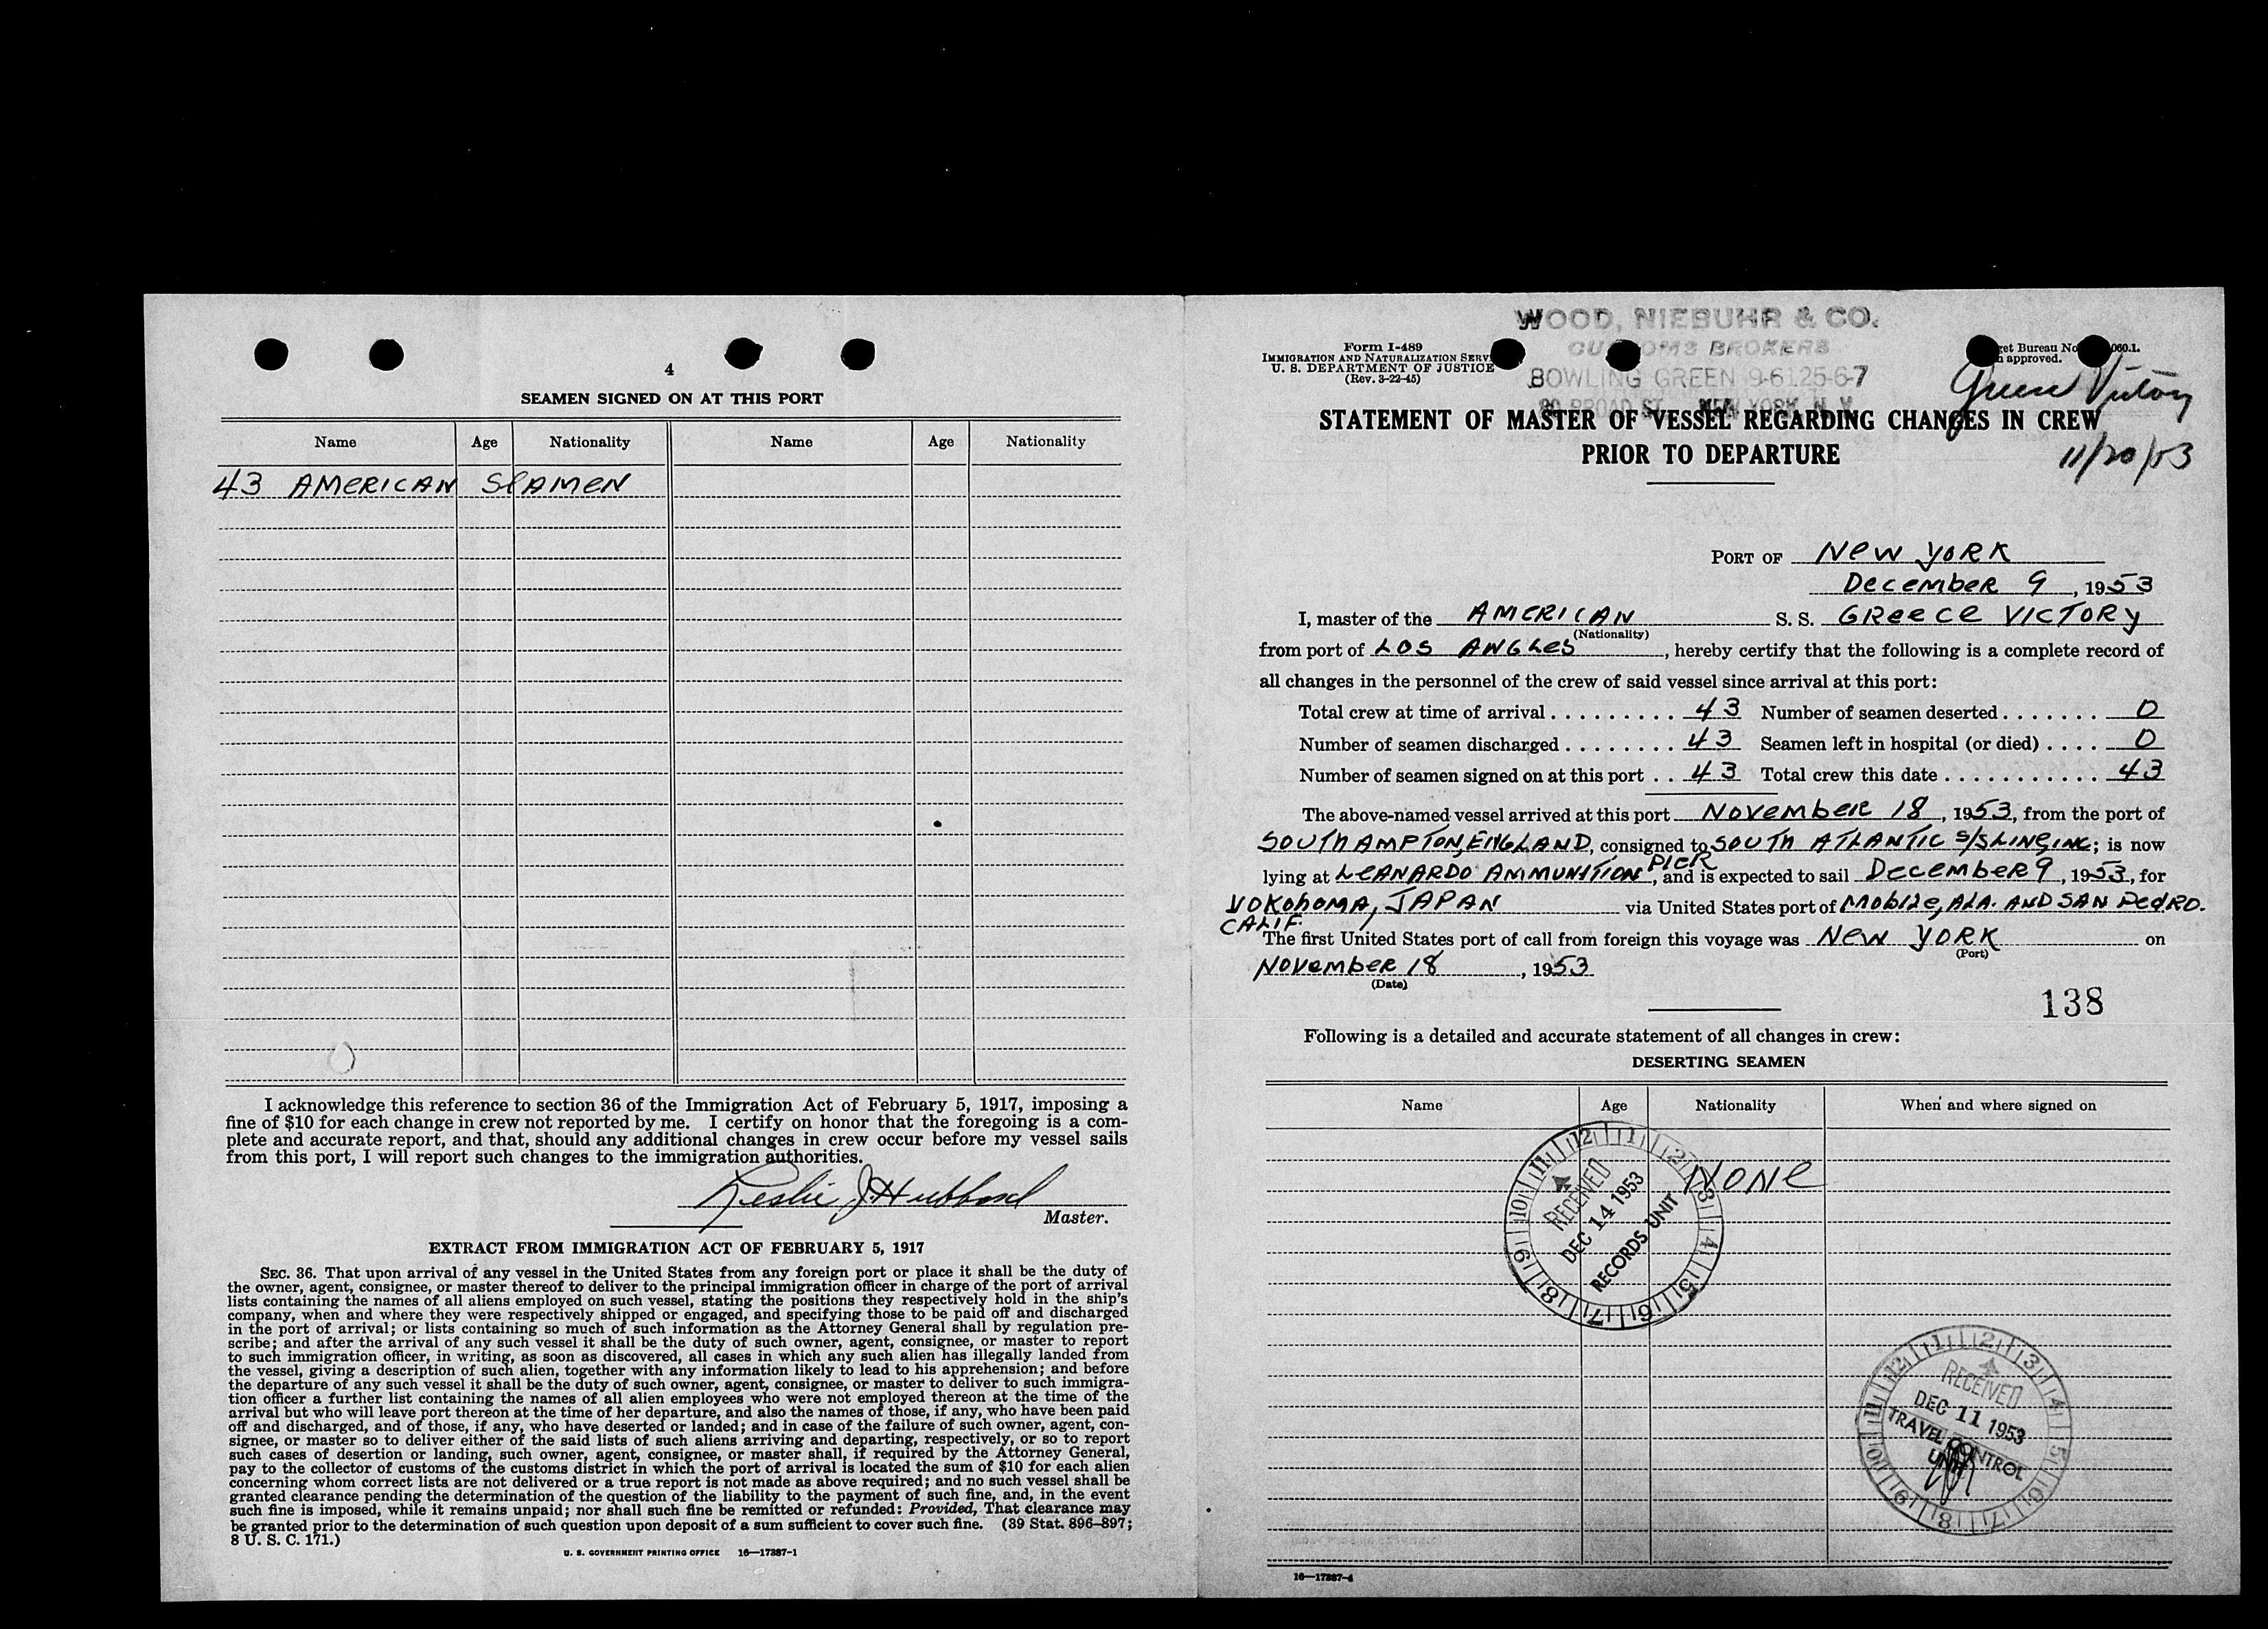 4
SEAMEN SIGNED ON AT THIS PORT
Name Age Nationality Name Age Nationality
43 AMERICAN SEAMEN
I acknowledge this reference to section 36 of the Immigration Act of February 5, 1917, imposing a
fine of $10 for each change in crew not reported by me. I certify on honor that the foregoing is a com-
plete and accurate report, and that, should any additional changes in crew occur before my vessel sails
from this port, I will report such changes to the immigration authorities.
Leslie J Hubbard
Master.
EXTRACT FROM IMMIGRATION ACT OF FEBRUARY 5, 1917
SEC. 36. That upon arrival of any vessel in the United States from any foreign port or place it shall be the duty of
the owner, agent, consignee, or master thereof to deliver to the principal immigration officer in charge of the port of arrival
lists containing the names of all aliens employed on such vessel, stating the positions they respectively hold in the ship's
company, when and where they were respectively shipped or engaged, and specifying those to be paid off and discharged
in the port of arrival; or lists containing so much of such information as the Attorney General shall by regulation pre-
scribe; and after the arrival of any such vessel it shall be the duty of such owner, agent, consignee, or master to report
to such immigration officer, in writing, as soon as discovered, all cases in which any such alien has illegally landed from
the vessel, giving a description of such alien, together with any information likely to lead to his apprehension; and before
the departure of any such vessel it shall be the duty of such owner, agent, consignee, or master to deliver to such immigra-
tion officer a further list containing the names of all alien employees who were not employed thereon at the time of the
arrival but who will leave port thereon at the time of her departure, and also the names of those, if any, who have been paid
off and discharged, and of those, if any, who have deserted or landed; and in case of the failure of such owner, agent, con-
signee, or master so to deliver either of the said lists of such aliens arriving and departing, respectively, or so to report
such cases of desertion or landing, such owner, agent, consignee, or master shall, if required by the Attorney General,
pay to the collector of customs of the customs district in which the port of arrival is located the sum of $10 for each alien
concerning whom correct lists are not delivered or a true report is not made as above required; and no such vessel shall be
granted clearance pending the determination of the question of the liability to the payment of such fine, and, in the event
such fine is imposed, while it remains unpaid; nor shall such fine be remitted or refunded: Provided, That clearance may
be granted prior to the determination of such question upon deposit of a sum sufficient to cover such fine. (39 Stat. 896-897;
8 U. S. C. 171.)
U. S. GOVERNMENT PRINTING OFFICE 16—17387-1
WOOD, NIEBUHR & CO.
CUSTOMS BROKERS
BOWLING GREEN 9-6125-6-7
80 BROAD ST. NEW YORK, N. Y.
Form I-489
IMMIGRATION AND NATURALIZATION SERV
U. S. DEPARTMENT OF JUSTICE
(Rev. 3-22-45)
get Bureau No. 060.1.
approved.
Greece Victory
11/20/53
STATEMENT OF MASTER OF VESSEL REGARDING CHANGES IN CREW
PRIOR TO DEPARTURE
PORT OF NEW YORK
DECEMBER 9, 1953
I, master of the AMERICAN S. S. GREECE VICTORY
(Nationality)
from port of LOS ANGLES, hereby certify that the following is a complete record of
all changes in the personnel of the crew of said vessel since arrival at this port:
Total crew at time of arrival 43 Number of seamen deserted 0
Number of seamen discharged 43 Seamen left in hospital (or died) 0
Number of seamen signed on at this port 43 Total crew this date 43
The above-named vessel arrived at this port NOVEMBER 18, 1953, from the port of
SOUTHAMPTON, ENGLAND, consigned to SOUTH ATLANTIC S/S LINE, INC; is now
lying at LEANARDO AMMUNITION PIER, and is expected to sail DECEMBER 9, 1953, for
YOKOHOMA, JAPAN via United States port of MOBILE, ALA. AND SAN PEDRO.
CALIF.
The first United States port of call from foreign this voyage was NEW YORK on
(Port)
NOVEMBER 18, 1953
(Date)
138
Following is a detailed and accurate statement of all changes in crew:
DESERTING SEAMEN
Name Age Nationality When and where signed on
NONE
12 1 2 3 4 5 6 7 8 9 10 11
RECEIVED
DEC 14 1953
RECORDS UNIT
12 1 2 3 4 5 6 7 8 9 10 11
RECEIVED
DEC 11 1953
TRAVEL CONTROL
UNIT
16—17387-4